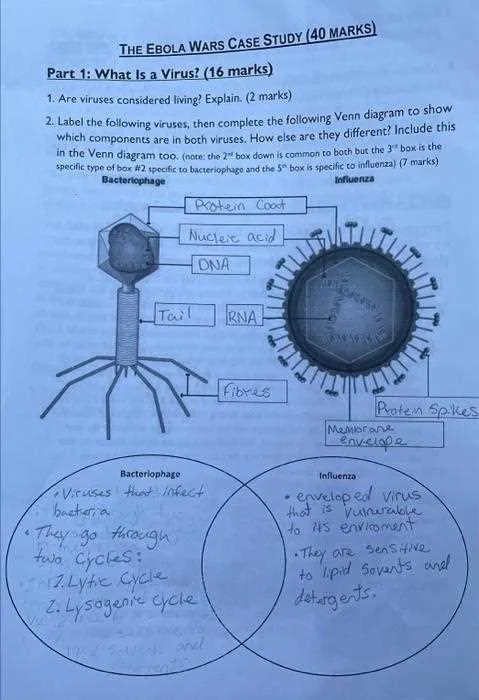 THE EBOLA WARS CASE STUDY (40 MARKS)
Part 1: What Is a Virus? (16 marks)
1. Are viruses considered living? Explain. (2 marks)
2. Label the following viruses, then complete the following Venn diagram to show
which components are in both viruses. How else are they different? Include this
in the Venn diagram too. (note: the 2nd box down is common to both but the 3rd box is the
specific type of box #2 specific to bacteriophage and the 5th box is specific to influenza) (7 marks)
Bacteriophage
Influenza
Protein Coat
Nucleic acid
DNA
Tail
RNA
Fibres
Protein Spikes
Membrane
envelope
Bacteriophage
• Viruses that infect
bacteria
• They go through
two Cycles:
1. Lytic Cycle
2. Lysogenic cycle
and
Influenza
• enveloped virus
that is vunurable
to its enviroment
• They are sensitive
to lipid Sovents and
detergents.